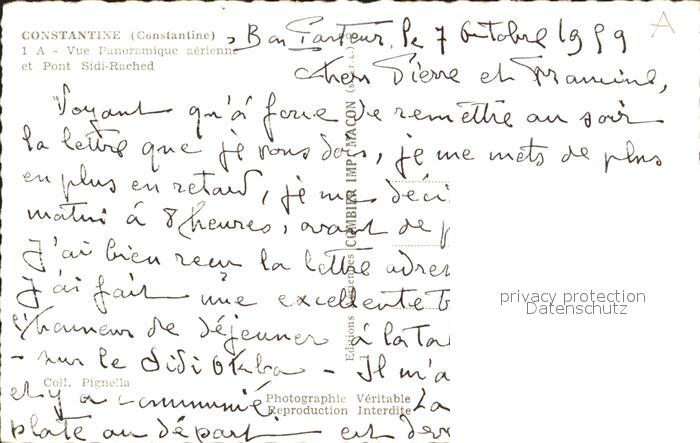 CONSTANTINE (Constantine)
1 A - Vue Panoramique aérienne
et Pont Sidi-Rached
le 7 Octobre 1959
A
Chers Pierre et Francine,
Voyant qu'à force de remettre au soir
la lettre que je vous dois, je me mets de plus
en plus en retard, je me déci
matin à 8 heures, avant de p
J'ai bien reçu la lettre adres
J'ai fait une excellente t
l'honneur de déjeuner à la Ta
- sur le Sidi Okba - Il m'a
Coll. Pignella
et y a communié. La
plate au départ est
Photographie Véritable
Reproduction Interdite
COMBIER IMP. MACON
privacy protection
Datenschutz